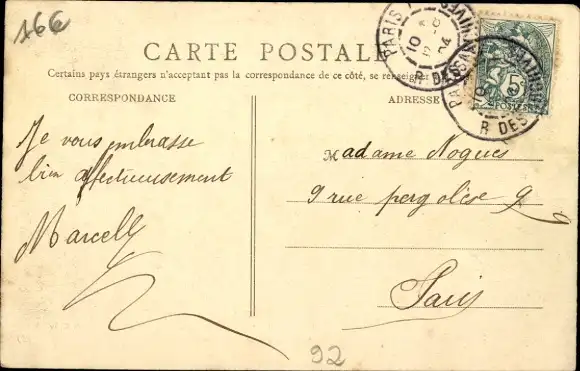 166
CARTE POSTALE
Certains pays étrangers n'acceptant pas la correspondance de ce côté, se renseigner
CORRESPONDANCE
ADRESSE
Je vous embrasse
bien affectueusement
Marcell
Madame Nogues
9 rue pergolèse
Paris
92
PARIS
10
04
R DES
5c
POSTES
R DES